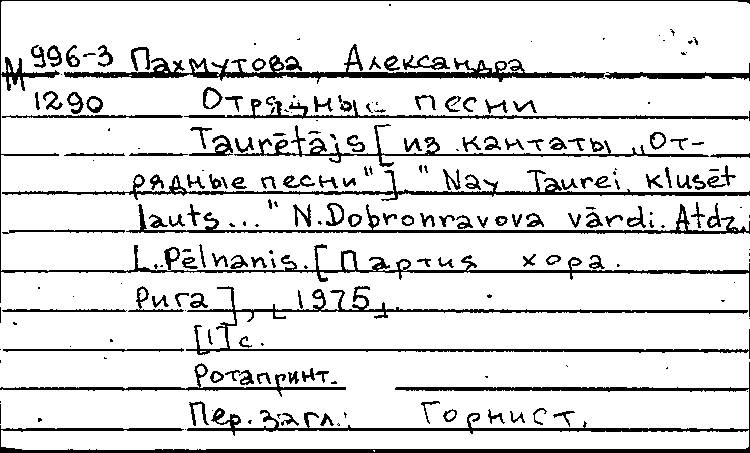 М 996-3 Пахмутова, Александра
1290 Отрядные песни
Taurētājs [из кантаты „От-
рядные песни"]. "Nav Taurei klusēt
ļauts..." N.Dobronravova vārdi. Atdz.
L.Pēlmanis. [Партия хора.
Рига], ⌞1975⌟.
[1] с.
Ротапринт.
Пер. загл.: Горнист.